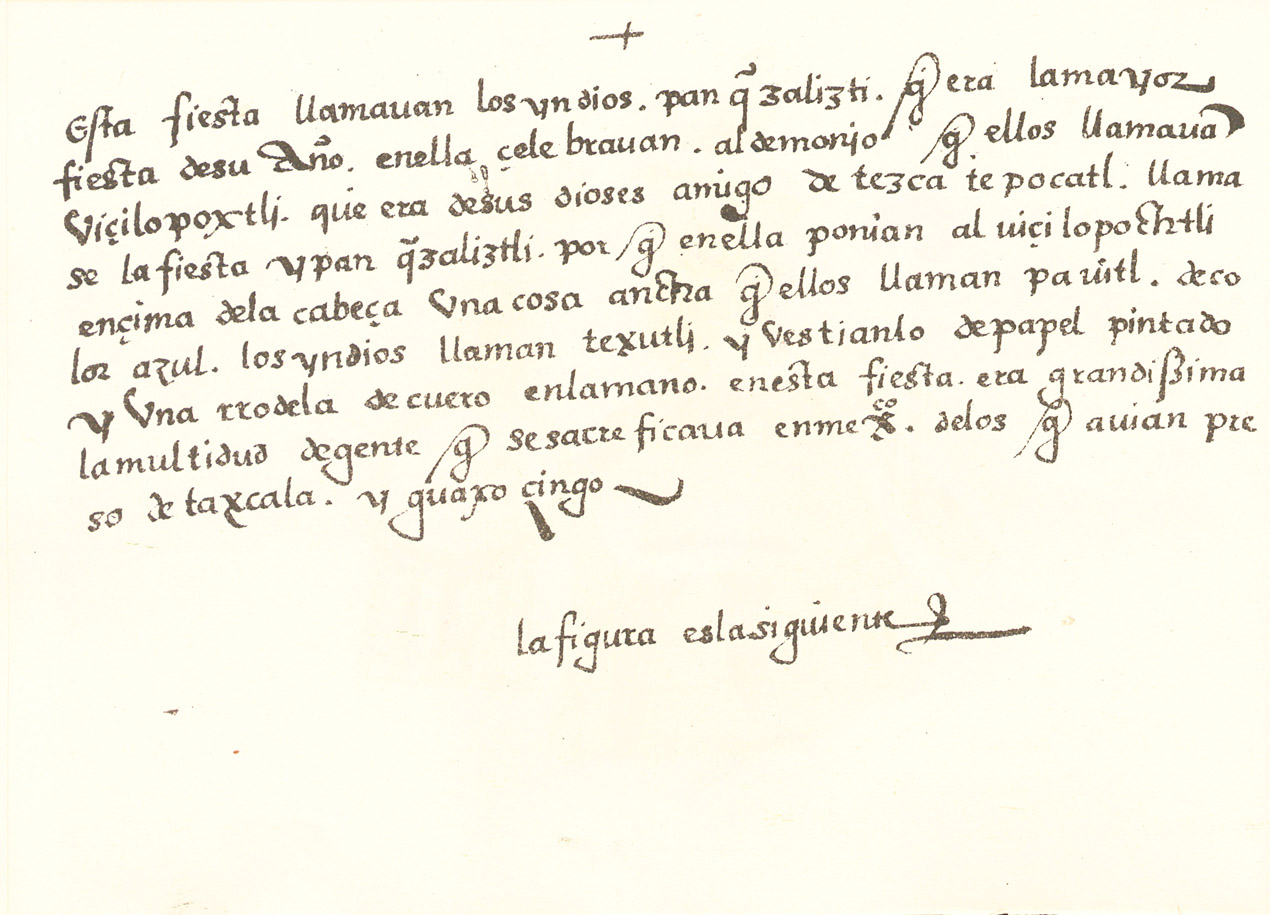 Esta fiesta llamauan los yndios. pan q̃zalizti. q̃ era la mayor
fiesta de su Año. en ella çele brauan. al demonjo q̃ ellos llamauã
Viçilopoxtlj. que era de sus dioses amigo de tezca te pocatl. llama
se la fiesta y pan q̃zaliztli. por q̃ en ella ponian al uiçi lopochtli
ençima de la cabeça Vna cosa ancha q̃ ellos llaman pa uitl. de co
lor azul. los yndios llaman texutlj. y Vestianlo de papel pintado
y Vna rrodela de cuero en la mano. en esta fiesta. era grandissima
la multidud de gente q̃ se sacre ficaua en mexco. de los q̃ auian pre
so de taxcala. y guaxo çingo
la figura es la siguiente